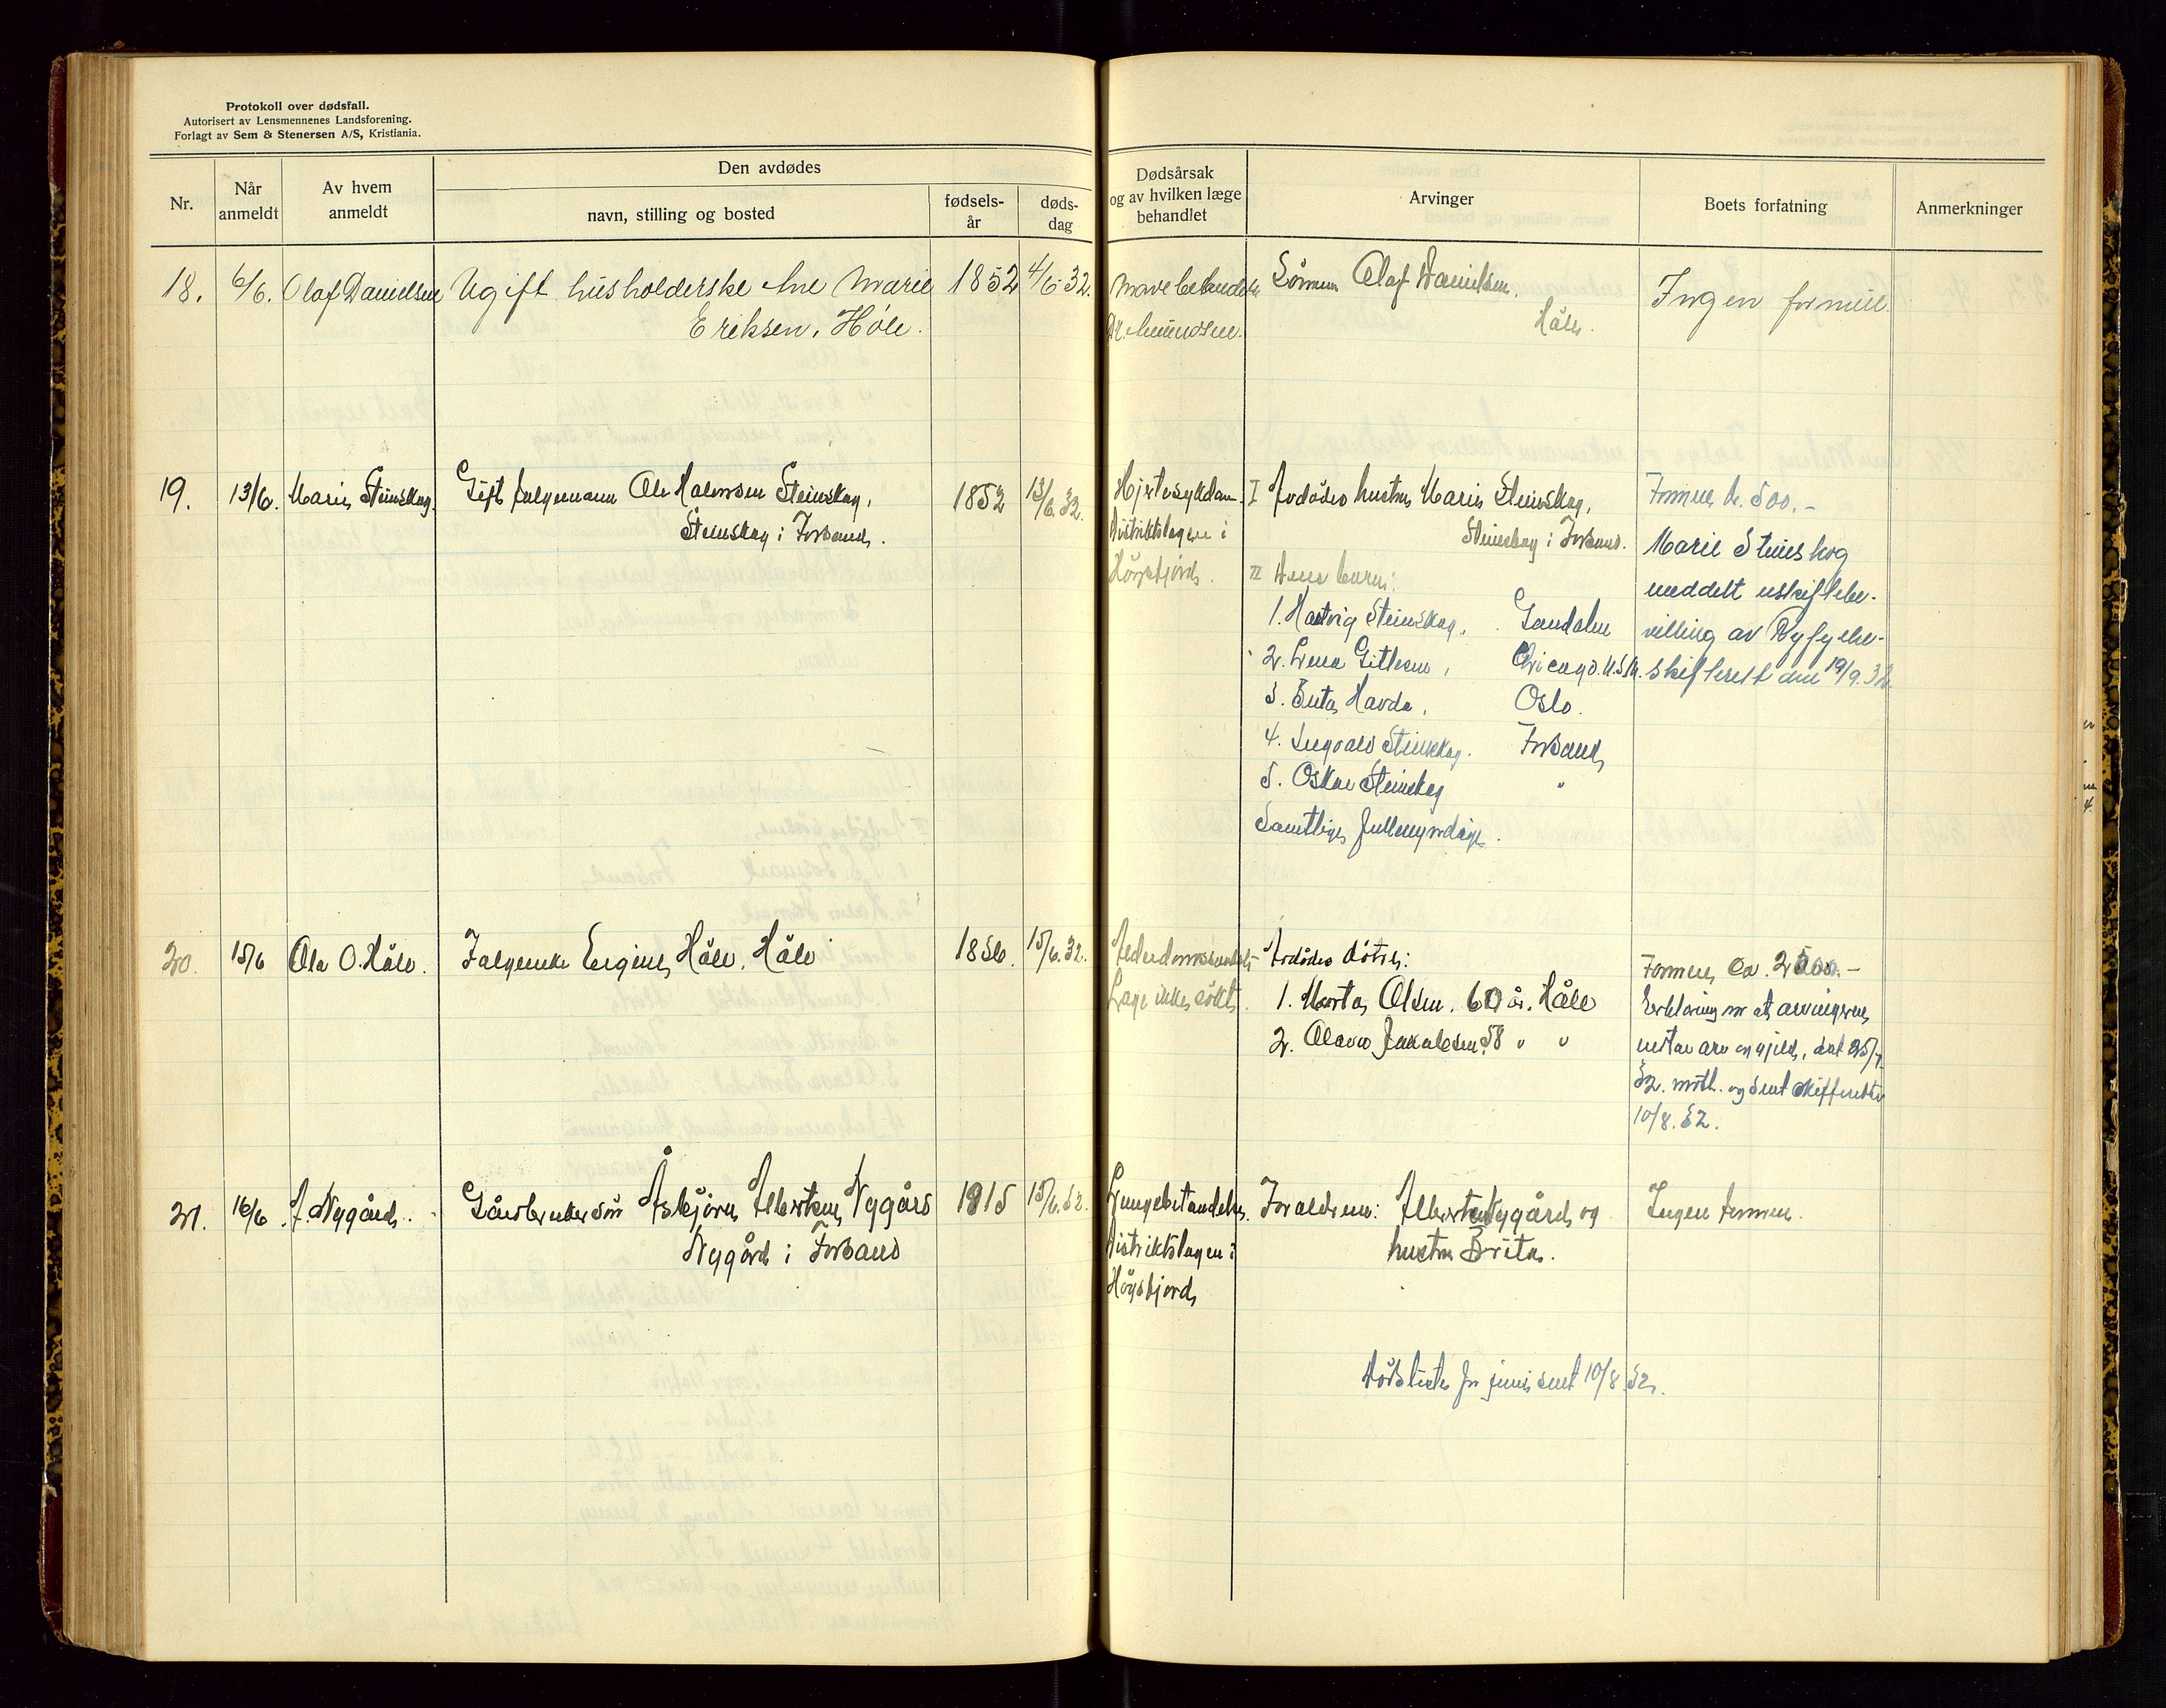 Protokoll over dødsfall.
Autorisert av Lensmennenes Landsforening.
Forlagt av Sem & Stenersen A/S, Kristiania.
Nr.
Når anmeldt
Av hvem anmeldt
Den avdødes
navn, stilling og bosted
fødsels-år
døds-dag
Dødsårsak og av hvilken læge behandlet
Arvinger
Boets forfatning
Anmerkninger
18. 6/6. Olaf Danielsen Ugift husholderske Ane Marie 1852 4/6-32.
Eriksen, Høle.
Dr. Amundsen.
Sönnen Olaf Danielsen.
Håle.
Ingen formue.
19. 13/6. Marie Steinskog. Gift fulgemann Ole Steinskog, 1852 13/6.32.
Steinskog i Forsand.
Hjertesykdom.
Distriktslægen i
Högsfjord.
I Avdödes hustru Marie Steinskog,
Steinskog i Forsand.
II Deres barn:
1. Hartvig Steinskog, Sandalen
2. Lena Gittlesen, Chicago. U.S.A.
3. Havda, Oslo.
4. Ingvald Steinskog. Forsand
5. Oskar Steinskog "
Samtlige fullmyndige.
Formue kr. 500.-
Marie Steinskog
meddelt uskiftebe-
villing av Ryfylke
skifterett den 19/9.32.
20. 15/6 Ole O. Håle. Falgeenke Håle, Håle 1856. 15/6.32.
Læge ikke sökt.
Avdödes dötre:
1. Marta Olsen, 60 år. Håle
2. Olava Jakobsen, 58 " "
Formue, ca. 2500.-
Erklæring om at arvingerne
uvtar arv og gjeld, dat 25/7.
32. mott. og sent skifteretten
10/8.32.
21. 16/6 A. Nygård. Gårdbrukersön Asbjörn Albertsen Nygård 1915 15/6.32.
Nygård i Forsand
Lungebetendelse.
Distriktslægen i
Högsfjord
Foreldrene: Albert Nygård og
hustru Brita.
Ingen formue.
Dödsliste for juni sent 10/8.32.